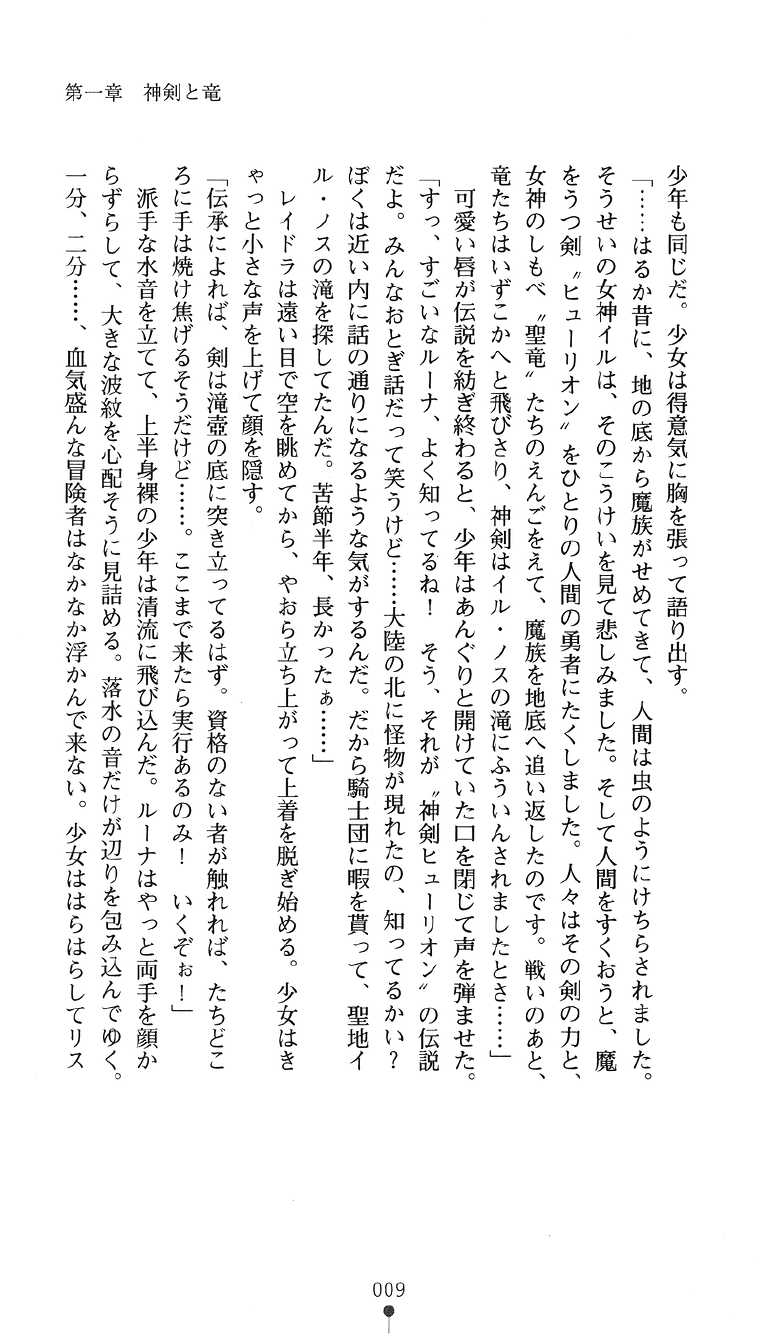 第一章　神剣と竜
少年も同じだ。少女は得意気に胸を張って語り出す。
「……はるか昔に、地の底から魔族がせめてきて、人間は虫のようにけちらされました。
そうせいの女神イルは、そのこうけいを見て悲しみました。そして人間をすくおうと、魔
をうつ剣〝ヒューリオン〟をひとりの人間の勇者にたくしました。人々はその剣の力と、
女神のしもべ〝聖竜〟たちのえんごをえて、魔族を地底へ追い返したのです。戦いのあと、
竜たちはいずこかへと飛びさり、神剣はイル・ノスの滝にふういんされましたとさ……」
　可愛い唇が伝説を紡ぎ終わると、少年はあんぐりと開けていた口を閉じて声を弾ませた。
「すっ、すごいなルーナ、よく知ってるね！　そう、それが〝神剣ヒューリオン〟の伝説
だよ。みんなおとぎ話だって笑うけど……大陸の北に怪物が現れたの、知ってるかい？
ぼくは近い内に話の通りになるような気がするんだ。だから騎士団に暇を貰って、聖地イ
ル・ノスの滝を探してたんだ。苦節半年、長かったぁ……」
　レイドラは遠い目で空を眺めてから、やおら立ち上がって上着を脱ぎ始める。少女はき
ゃっと小さな声を上げて顔を隠す。
「伝承によれば、剣は滝壺の底に突き立ってるはず。資格のない者が触れれば、たちどこ
ろに手は焼け焦げるそうだけど……。ここまで来たら実行あるのみ！　いくぞぉ！」
　派手な水音を立てて、上半身裸の少年は清流に飛び込んだ。ルーナはやっと両手を顔か
らずらして、大きな波紋を心配そうに見詰める。落水の音だけが辺りを包み込んでゆく。
一分、二分……、血気盛んな冒険者はなかなか浮かんで来ない。少女ははらはらしてリス
009